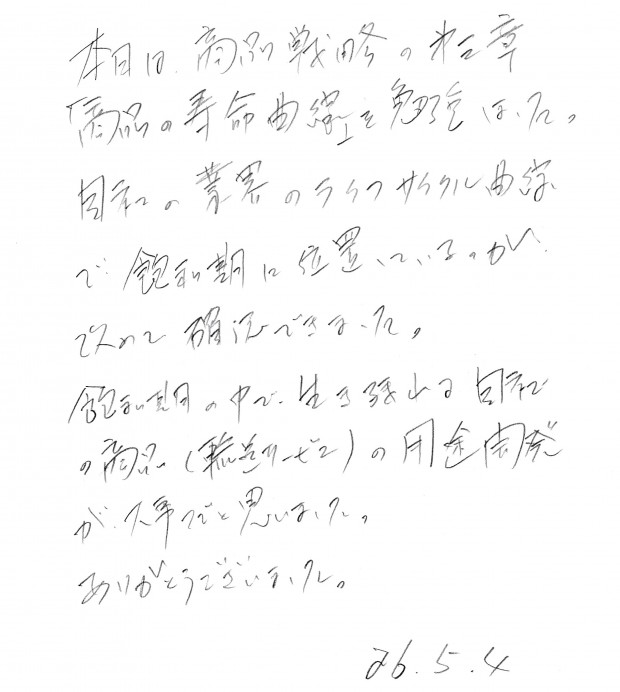 本日は、商品戦略の第二章
「商品の寿命曲線」を勉強しました。
自社の業界のライフサイクル曲線
で飽和期に位置しているのが、
改めて確認できました。
飽和期の中で、生き残れる自社
の商品(輸送サービス)の用途開発
が、大事だと思いました。
ありがとうございました。
26.5.4